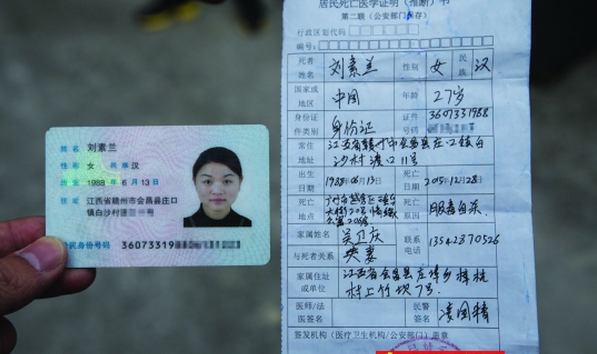 姓名 刘素兰
性别 女 民族 汉
1988 年 6 月 13 日
住址 江西省赣州市会昌县庄口
镇白沙村
公民身份号码 36073319
居民死亡医学证明（推断）书
第二联（公安部门保存）
行政区划代码
死者姓名 刘素兰 性别 女 民族 汉
国家或地区 中国 年龄 27岁
身份证件类别 身份证 证件 3607331988
常住 江西省赣州市会昌县庄口镇白
沙村渡口11号
出生日期 1988年06月13日 死亡日期 2015年12月28日
死亡地点 死亡 服毒自杀
家属姓名 吴卫庆 联系电话 13542870526
与死者关系 夫妻
家属地址或单位 江西省会昌县庄埠乡
村上竹坝7号
医师/法医签名 民警签名
签发机构（医疗卫生机构/公安部门）盖章